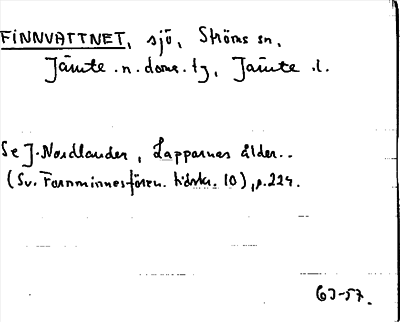 FINNVATTNET, sjö, Ströms sn,
Jämte .n. doms. tg, Jämte .l.
Se J. Nordlander, Lapparnes ålder..
(Sv. Fornminnesfören. tidskr. 10), s. 224.
63-57.